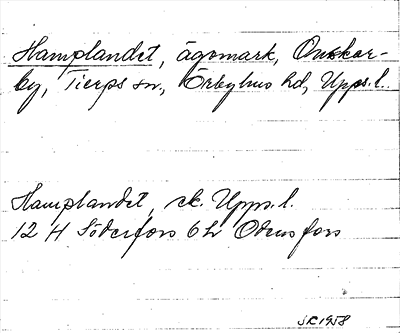 Hamplandet, ägomark, Onskar-
by, Tierps sn, Örbyhus hd, Upps.l.
Hamplandet, ek. Upps.l.
12 H Söderfors 6 h Odensfors
SR 1958